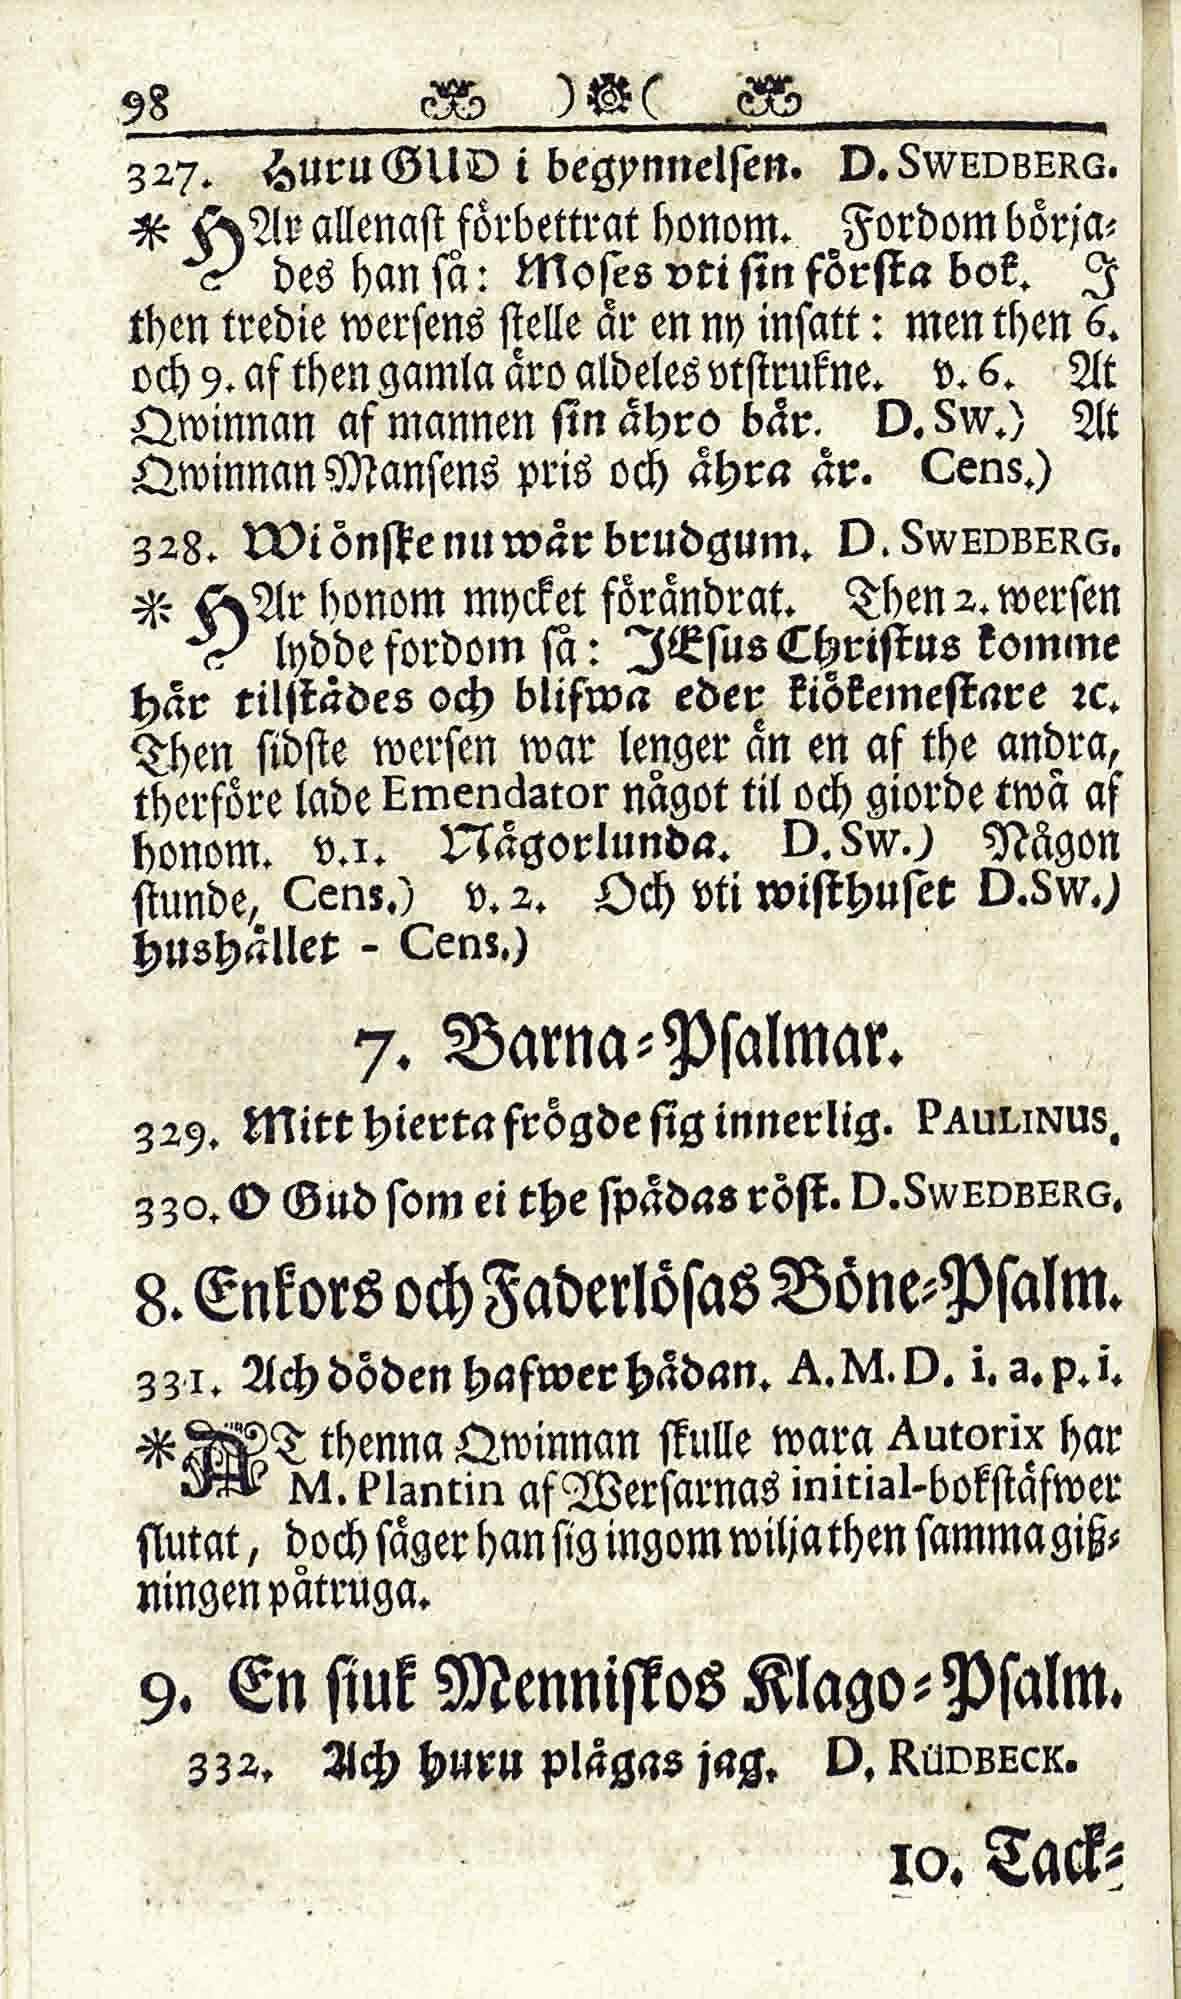 98 ) (
327. Huru GUD i begynnelsen. D. SWEDBERG.
* HAr allenast förbettrat honom. Fordom börja-
des han så: Moses vti sin första bok. I
then tredie wersens stelle är en ny insatt: men then 6.
och 9. af then gamla äro aldeles vtstrukne. v. 6. At
Qwinnan af mannen sin ähro bär. D. Sw.) At
Qwinnan Mansens pris och ähra är. Cens.)
328. Wi önske nu wår brudgum. D. SWEDBERG.
* HAr honom mycket förändrat. Then 2. wersen
lydde fordom så: JEsus Christus komme
här tilstädes och blifwa eder kiökemestare ꝛc.
Then sidste wersen war lenger än en af the andra,
therföre lade Emendator något til och giorde twå af
honom. v. 1. Någorlunda. D. Sw.) Någon
stunde, Cens.) v. 2. Och vti wisthuset D.Sw.)
hushållet - Cens.)
7. Barna-Psalmar.
329. Mitt hierta frögde sig innerlig. PAULINUS.
330. O Gud som ei the spädas röst. D. SWEDBERG.
8. Enkors och Faderlösas Böne-Psalm.
331. Ach döden hafwer hädan. A. M. D. i. a. p. i.
* AT thenna Qwinnan skulle wara Autorix har
M. Plantin af Wersarnas initial-bokstäfwer
slutat, doch säger han sig ingom wilja then samma giß-
ningen påtruga.
9. En siuk Menniskos Klago-Psalm.
332. Ach huru plågas jag. D. RÜDBECK.
10. Tack-